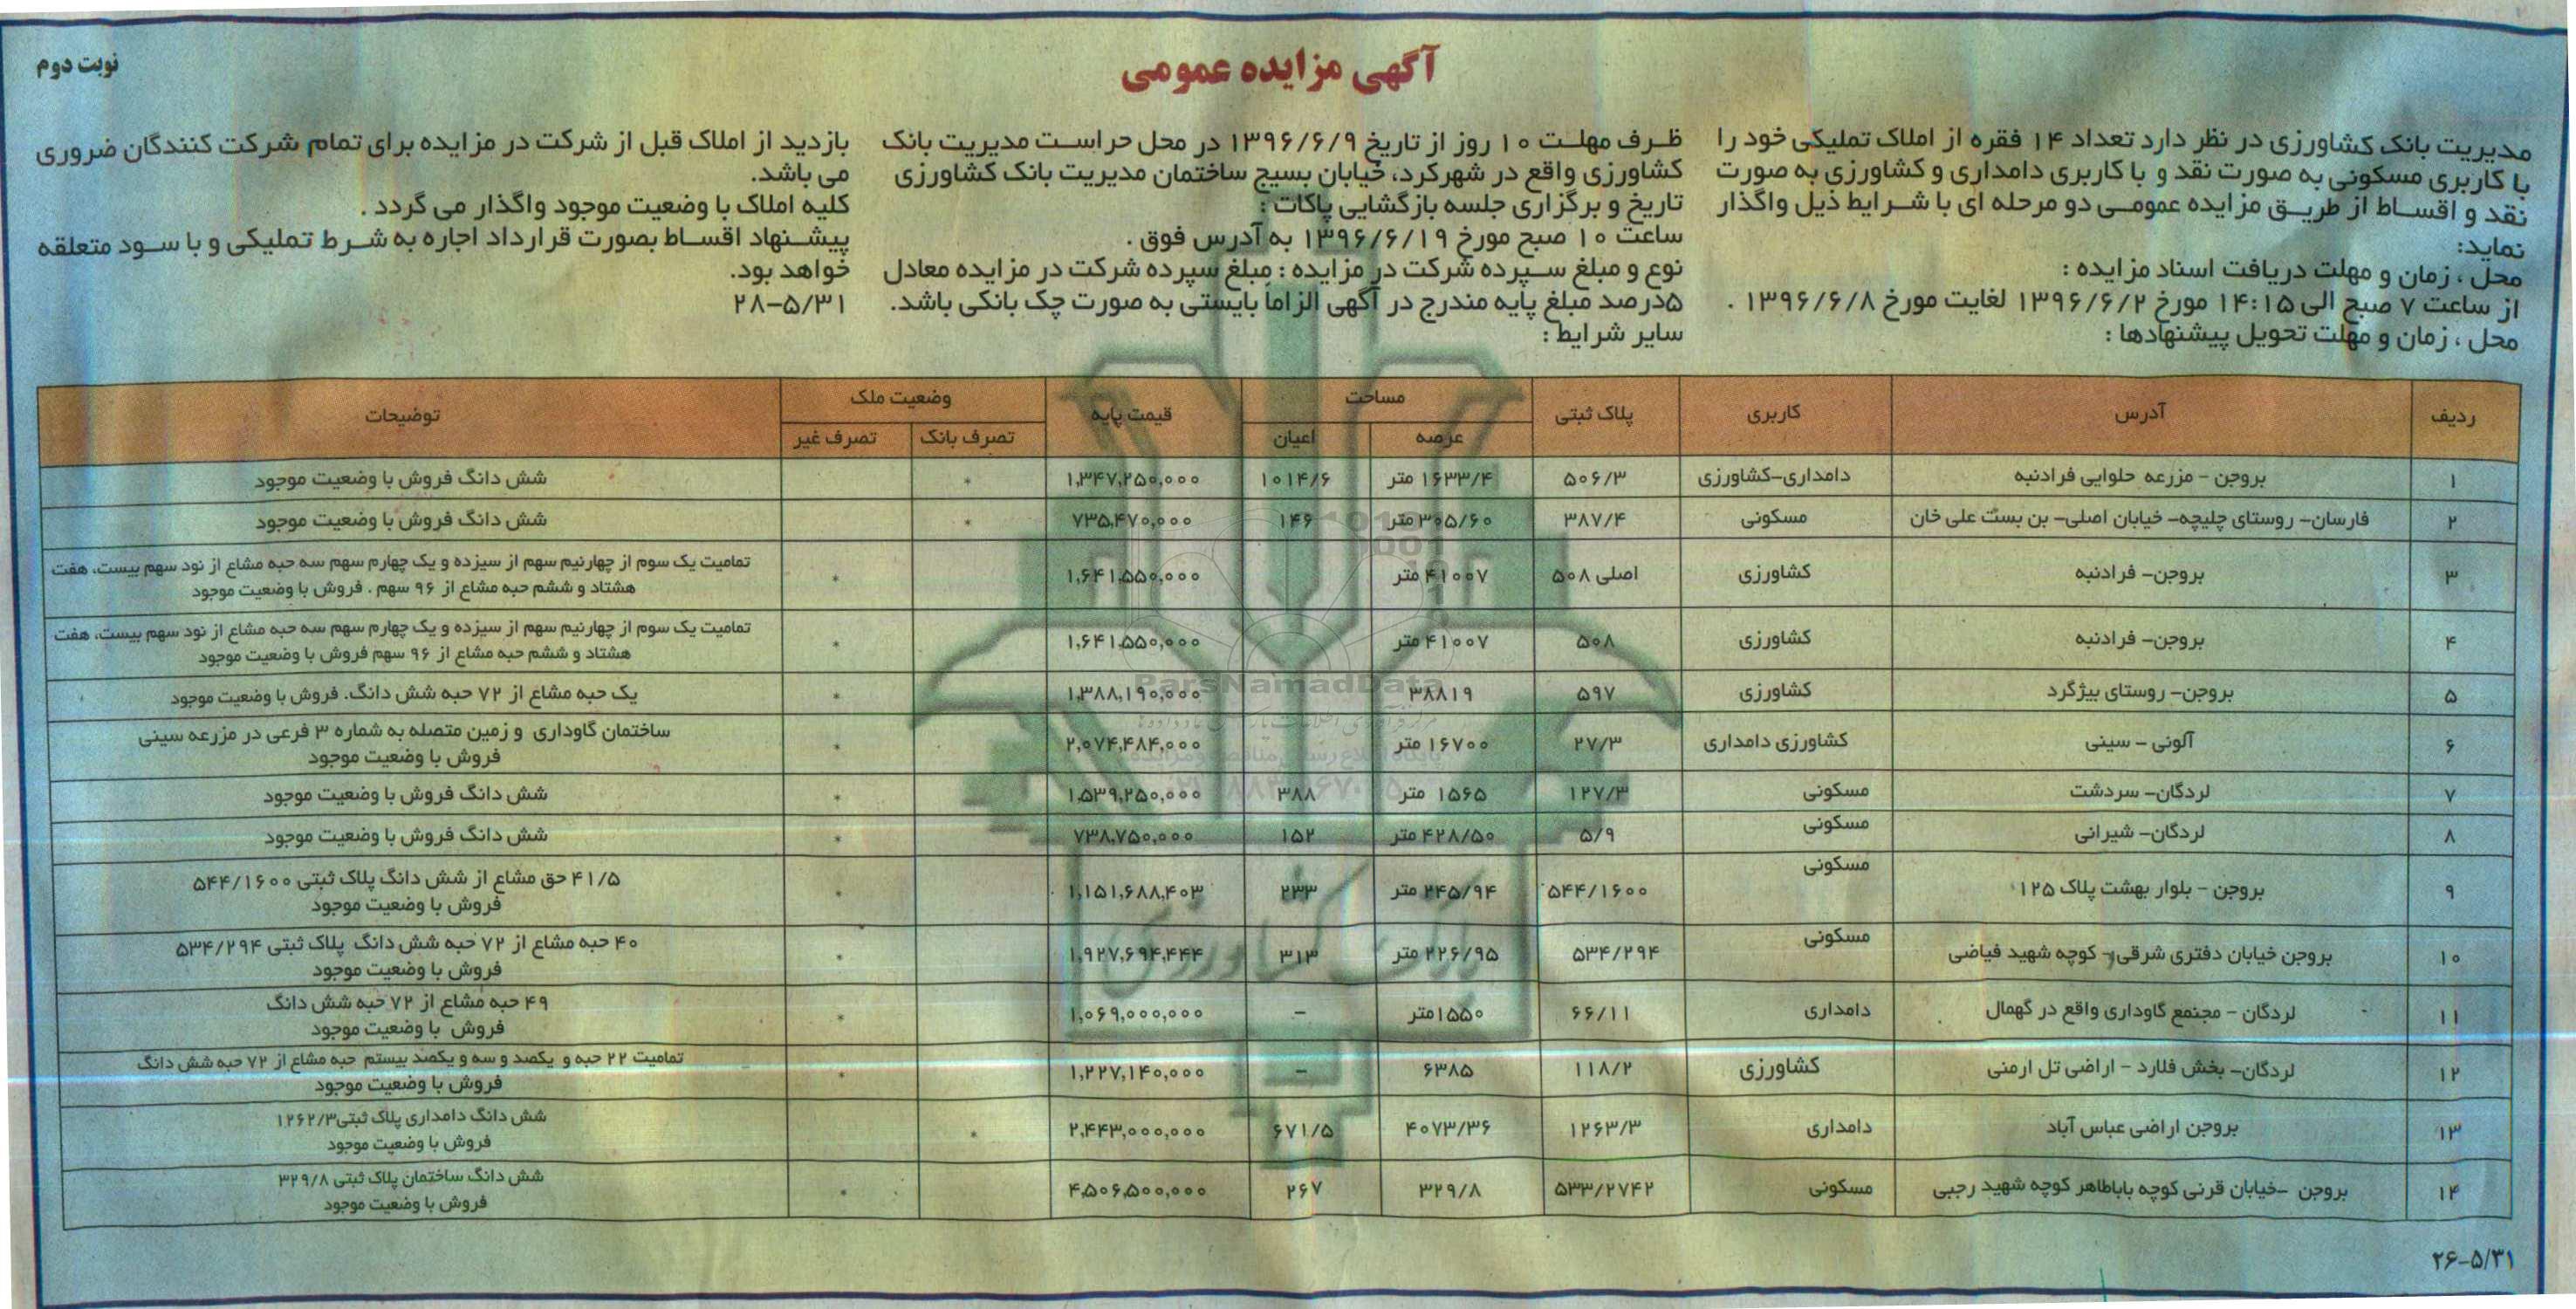 نوبت دوم
آگهی مزایده عمومی
مدیریت بانک کشاورزی در نظر دارد تعداد ۱۴ فقره از املاک تملیکی خود را
با کاربری مسکونی به صورت نقد و با کاربری دامداری و کشاورزی به صورت
نقد و اقساط از طریق مزایده عمومی دو مرحله ای با شرایط ذیل واگذار
نماید:
محل ، زمان و مهلت دریافت اسناد مزایده :
از ساعت ۷ صبح الی ۱۴:۱۵ مورخ ۱۳۹۶/۶/۲ لغایت مورخ ۱۳۹۶/۶/۸ .
محل ، زمان و مهلت تحویل پیشنهادها :
ظرف مهلت ۱۰ روز از تاریخ ۱۳۹۶/۶/۹ در محل حراست مدیریت بانک
کشاورزی واقع در شهرکرد، خیابان بسیج ساختمان مدیریت بانک کشاورزی
تاریخ و برگزاری جلسه بازگشایی پاکات :
ساعت ۱۰ صبح مورخ ۱۳۹۶/۶/۱۹ به آدرس فوق .
نوع و مبلغ سپرده شرکت در مزایده : مبلغ سپرده شرکت در مزایده معادل
۵درصد مبلغ پایه مندرج در آگهی الزاماً بایستی به صورت چک بانکی باشد.
سایر شرایط :
بازدید از املاک قبل از شرکت در مزایده برای تمام شرکت کنندگان ضروری
می باشد.
کلیه املاک با وضعیت موجود واگذار می گردد .
پیشنهاد اقساط بصورت قرارداد اجاره به شرط تملیکی و با سود متعلقه
خواهد بود.
۲۸-۵/۳۱
ردیف آدرس کاربری پلاک ثبتی مساحت قیمت پایه وضعیت ملک توضیحات
عرصه اعیان تصرف بانک تصرف غیر
۱ بروجن - مزرعه حلوایی فرادنبه دامداری-کشاورزی ۵۰۶/۳ ۱۶۳۳/۴ متر ۱۰۱۴/۶ ۱,۳۴۷,۲۵۰,۰۰۰ * شش دانگ فروش با وضعیت موجود
۲ فارسان- روستای چلیچه- خیابان اصلی- بن بست علی خان مسکونی ۳۸۷/۴ ۳۰۵/۶۰ متر ۱۴۶ ۷۳۵,۴۷۰,۰۰۰ * شش دانگ فروش با وضعیت موجود
۳ بروجن- فرادنبه کشاورزی اصلی ۵۰۸ ۴۱۰۰۷ متر ۱,۶۴۱,۵۵۰,۰۰۰ * تمامیت یک سوم از چهارنیم سهم از سیزده و یک چهارم سهم سه حبه مشاع از نود سهم بیست، هفت
هشتاد و ششم حبه مشاع از ۹۶ سهم . فروش با وضعیت موجود
۴ بروجن- فرادنبه کشاورزی ۵۰۸ ۴۱۰۰۷ متر ۱,۶۴۱,۵۵۰,۰۰۰ * تمامیت یک سوم از چهارنیم سهم از سیزده و یک چهارم سهم سه حبه مشاع از نود سهم بیست، هفت
هشتاد و ششم حبه مشاع از ۹۶ سهم فروش با وضعیت موجود
۵ بروجن- روستای بیژگرد کشاورزی ۵۹۷ ۳۸۸۱۹ ۱,۳۸۸,۱۹۰,۰۰۰ * یک حبه مشاع از ۷۲ حبه شش دانگ. فروش با وضعیت موجود
۶ آلونی - سینی کشاورزی دامداری ۲۷/۳ ۱۶۷۰۰ متر ۲,۰۷۴,۴۸۴,۰۰۰ * ساختمان گاوداری و زمین متصله به شماره ۳ فرعی در مزرعه سینی
فروش با وضعیت موجود
۷ لردگان- سردشت مسکونی ۱۲۷/۳ ۱۵۶۵ متر ۳۸۸ ۱,۵۳۹,۲۵۰,۰۰۰ * شش دانگ فروش با وضعیت موجود
۸ لردگان- شیرانی مسکونی ۵/۹ ۴۲۸/۵۰ متر ۱۵۲ ۷۳۸,۷۵۰,۰۰۰ * شش دانگ فروش با وضعیت موجود
۹ بروجن - بلوار بهشت پلاک ۱۲۵ مسکونی ۵۴۴/۱۶۰۰ ۲۴۵/۹۴ متر ۲۳۳ ۱,۱۵۱,۶۸۸,۴۰۳ * ۴۱/۵ حق مشاع از شش دانگ پلاک ثبتی ۵۴۴/۱۶۰۰
فروش با وضعیت موجود
۱۰ بروجن خیابان دفتری شرقی- کوچه شهید فیاضی مسکونی ۵۳۴/۲۹۴ ۲۲۶/۹۵ متر ۳۱۳ ۱,۹۲۷,۶۹۴,۴۴۴ * ۴۰ حبه مشاع از ۷۲ حبه شش دانگ پلاک ثبتی ۵۳۴/۲۹۴
فروش با وضعیت موجود
۱۱ لردگان - مجتمع گاوداری واقع در گهمال دامداری ۶۶/۱۱ ۱۵۵۰متر - ۱,۰۶۹,۰۰۰,۰۰۰ * ۴۹ حبه مشاع از ۷۲ حبه شش دانگ
فروش با وضعیت موجود
۱۲ لردگان- بخش فلارد - اراضی تل ارمنی کشاورزی ۱۱۸/۲ ۶۳۸۵ - ۱,۲۲۷,۱۴۰,۰۰۰ * تمامیت ۲۲ حبه و یکصد و سه و یکصد بیستم حبه مشاع از ۷۲ حبه شش دانگ
فروش با وضعیت موجود
۱۳ بروجن اراضی عباس آباد دامداری ۱۲۶۳/۳ ۴۰۷۳/۳۶ ۶۷۱/۵ ۲,۴۴۳,۰۰۰,۰۰۰ * شش دانگ دامداری پلاک ثبتی۱۲۶۲/۳
فروش با وضعیت موجود
۱۴ بروجن -خیابان قرنی کوچه باباطاهر کوچه شهید رجبی مسکونی ۵۳۳/۲۷۴۲ ۳۲۹/۸ ۲۶۷ ۴,۵۰۶,۵۰۰,۰۰۰ * شش دانگ ساختمان پلاک ثبتی ۳۲۹/۸
فروش با وضعیت موجود
ParsNamadData
بانک کشاورزی
۲۶-۵/۳۱